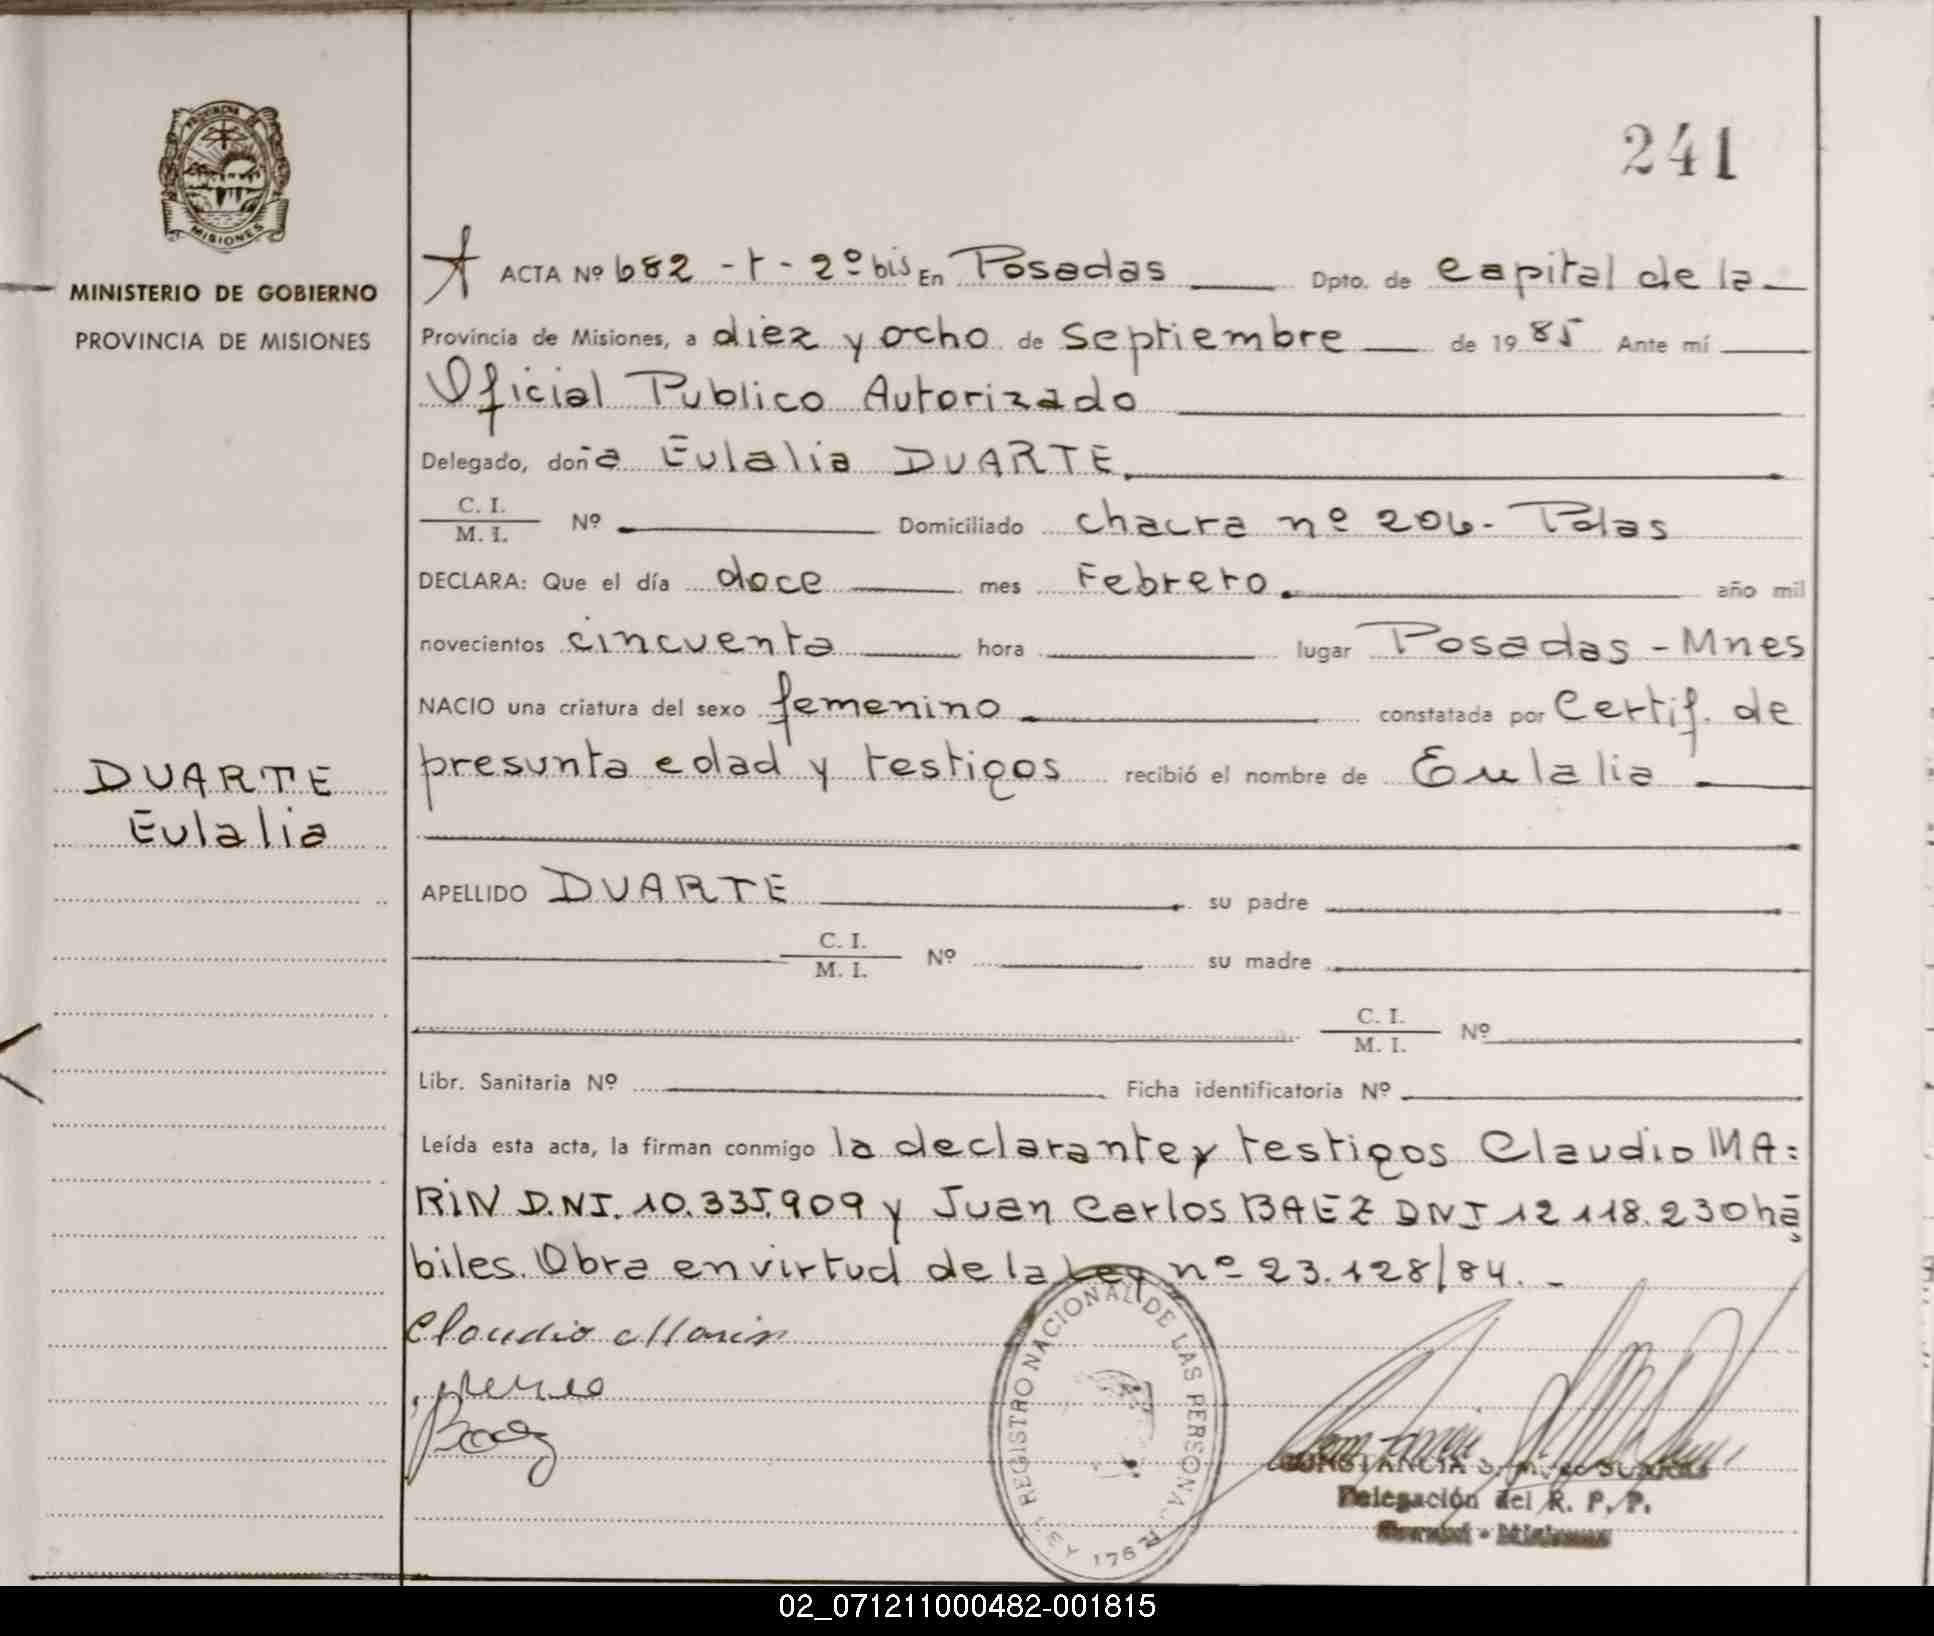 241
PROVINCIA DE
MISIONES
MINISTERIO DE GOBIERNO
PROVINCIA DE MISIONES
DUARTE
Eulalia
ACTA Nº 682 - t - 2º bis En Posadas Dpto. de Capital de la
Provincia de Misiones, a diez y ocho de Septiembre de 1985 Ante mí
Oficial Publico Autorizado
Delegado, doña Eulalia DUARTE
C. I.
M. I. Nº Domiciliado chacra nº 206 - Pdas
DECLARA: Que el día doce mes Febrero año mil
novecientos cincuenta hora lugar Posadas - Mnes
NACIO una criatura del sexo femenino constatada por Certif. de
presunta edad y testigos recibió el nombre de Eulalia
APELLIDO DUARTE su padre
C. I.
M. I. Nº su madre
C. I.
M. I. Nº
Libr. Sanitaria Nº Ficha identificatoria Nº
Leída esta acta, la firman conmigo la declarante y testigos Claudio MA=
RIN D.N.I. 10.335.909 y Juan Carlos BAEZ DNI 12 118.230 há
biles. Obra en virtud de la Ley nº 23.128/84. -
Claudio Marin
Baez
REGISTRO NACIONAL DE LAS PERSONA
LEY 1762
CONSTANCIA
Delegación del R. P. P.
Misiones
02_071211000482-001815